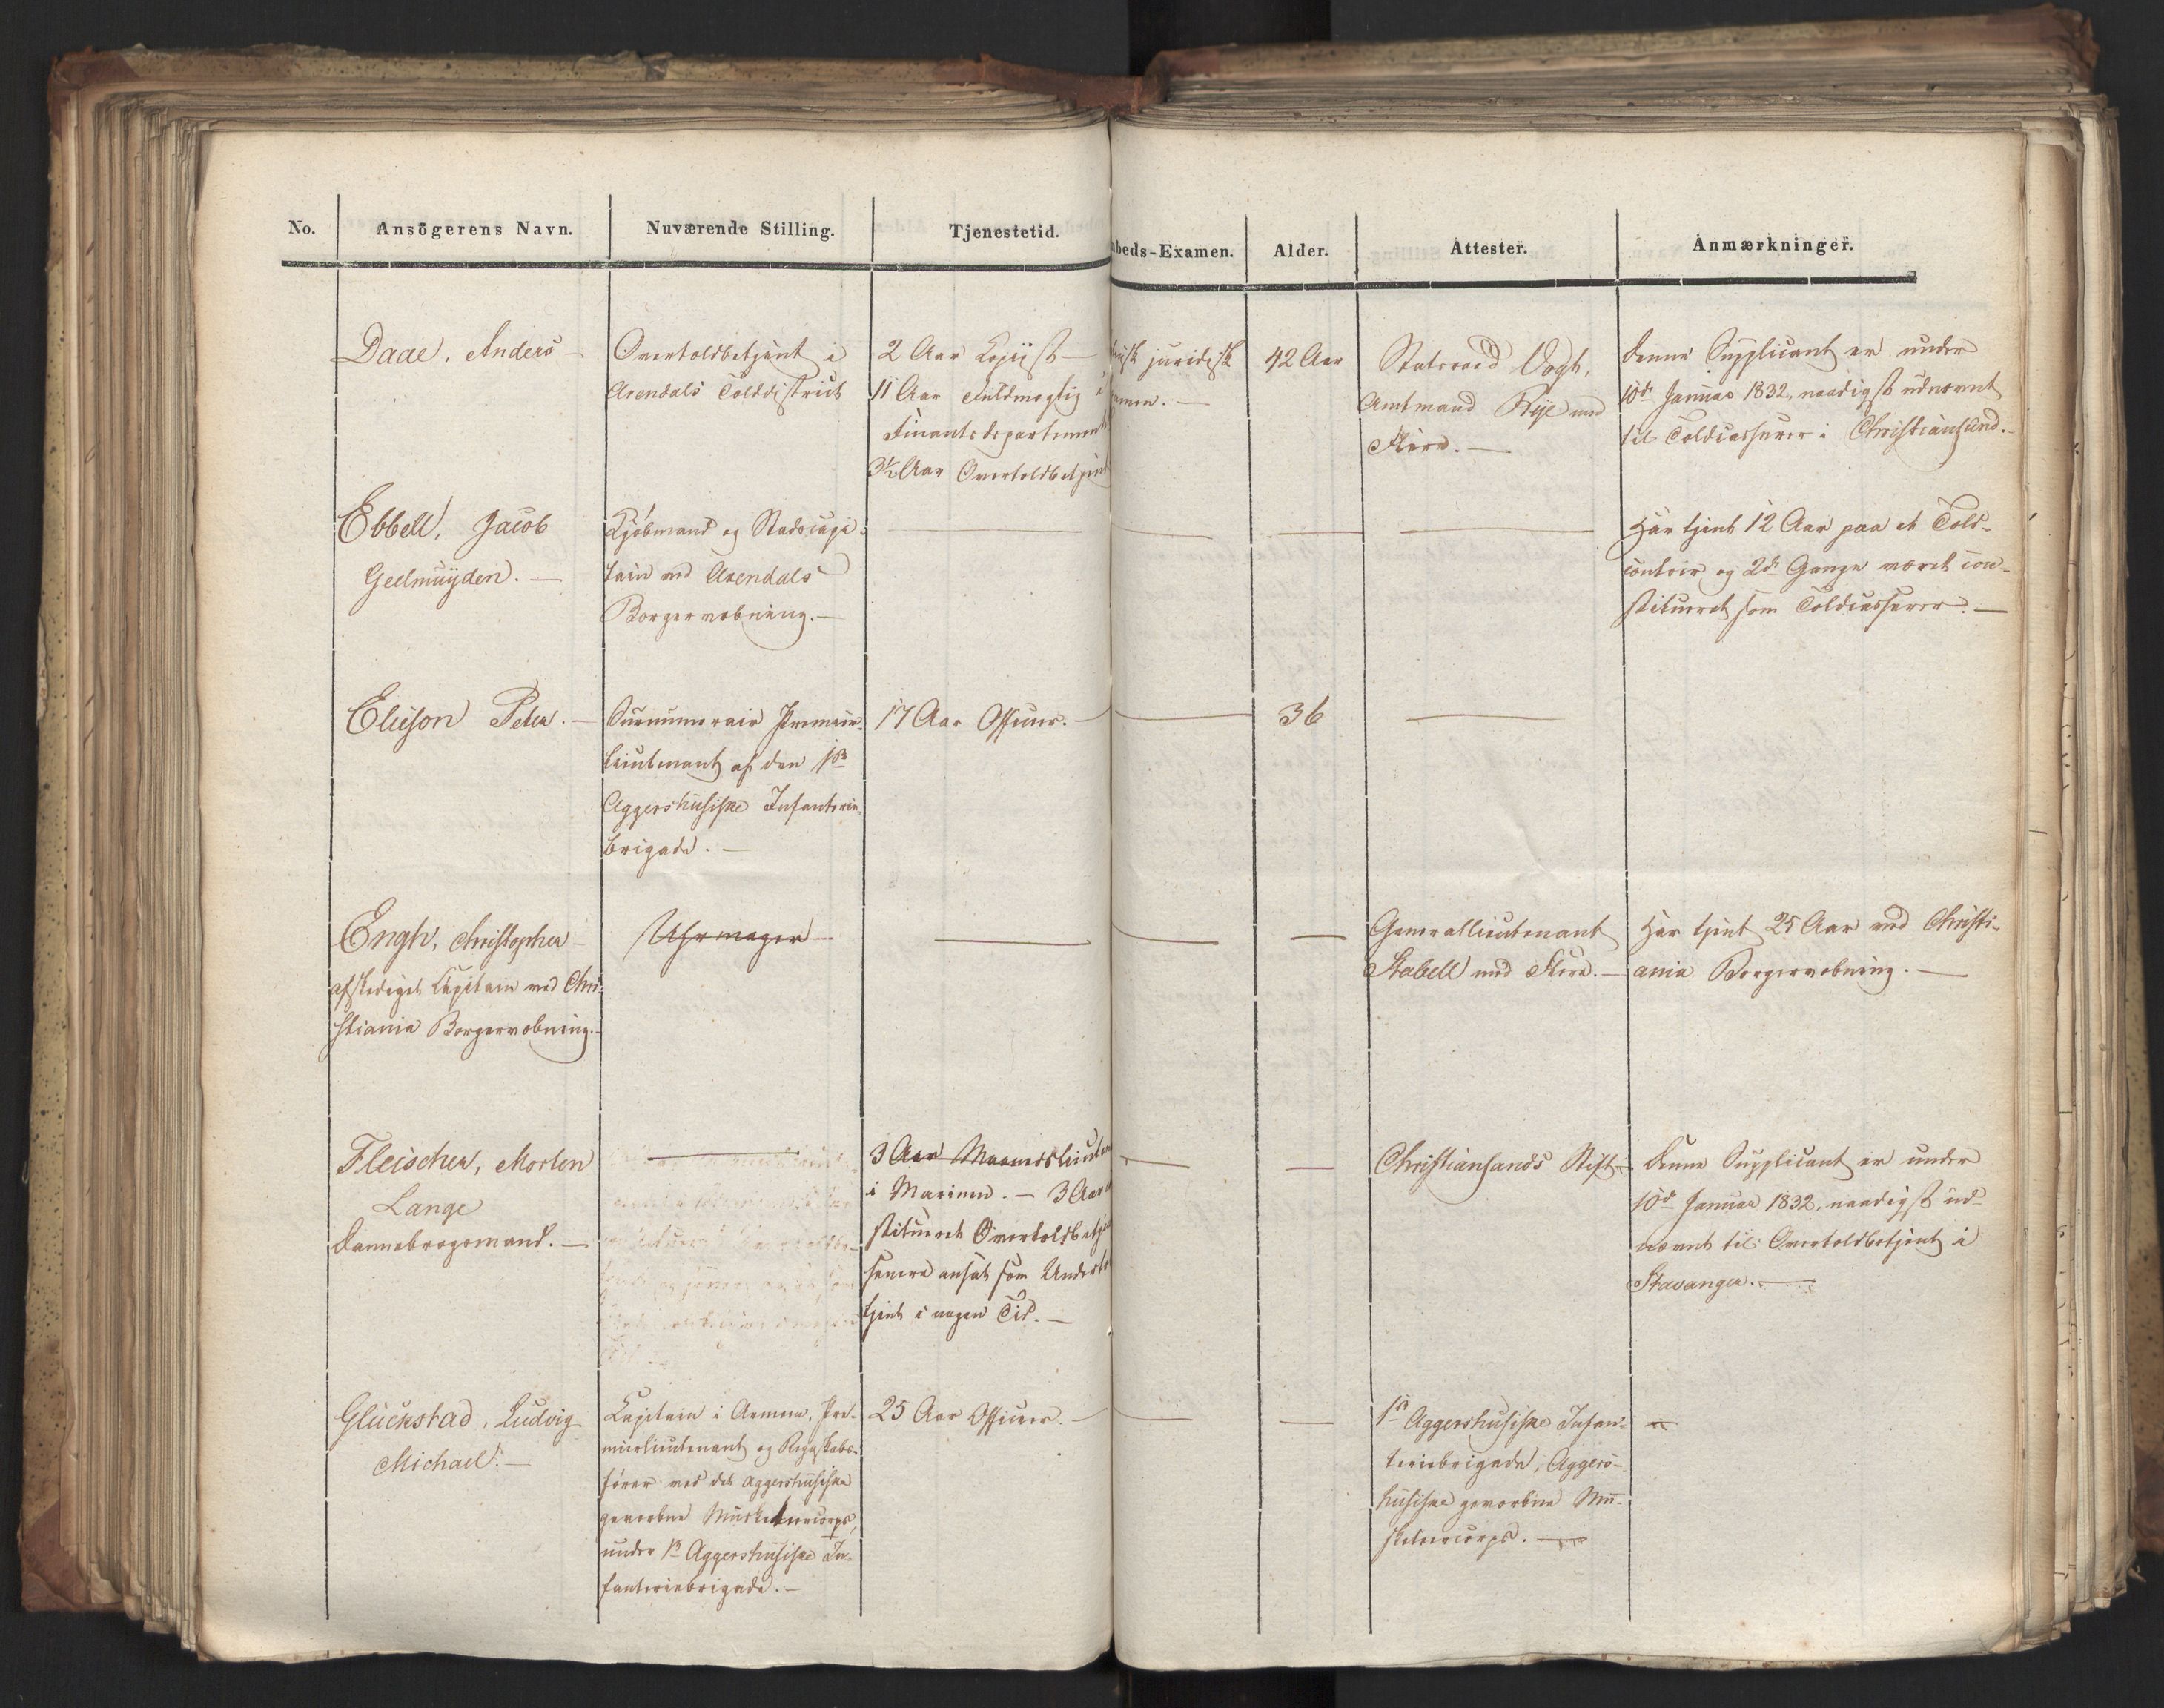 No.
Ansögerens Navn.
Nuværende Stilling.
Tjenestetid.
beds-Examen.
Alder.
Attester.
Anmærkninger.
Daae, Anders –
Overtoldbetjent i
Arendals Tolddistrict
2 Aar Copiist –
11 Aar Fuldmægtig i
Finantsdepartement
3½ Aar Overtoldbetjent
juridisk
amen. –
42 Aar
Statsraad Vogt,
Amtmand Bye med
Flere. –
Denne Supplicant er under
10de Januar 1832, naadigst udnævnt
til Toldcasserer i Christiansund. –
Ebbell, Jacob
Geelmuyden. –
Kjöbmand og Stadscapi-
tain ved Arendals
Borgervæbning. –
Har tjent 12 Aar paa et Told-
contoir og 2de Gange været con-
stitueret som Toldcasserer. –
Elieson Peter. –
Surnumerair Premier-
lieutenant af den 1ste
Aggershusiske Infanterie-
brigade. –
17 Aar Officier. –
36
Engh, Christopher –
afskediget Capitain ved Chri-
stiania Borgervæbning. –
Uhrmager
Generallieutenant
Stabell med Flere. –
Har tjent 25 Aar ved Christi-
ania Borgervæbning. –
Fleischer, Morten
Lange
Dannebrogsmand. –
3 Aar Maanedslieuten
i Marinen. – 3 Aar
stitueret Overtoldbetj
senere ansat som Underto
tjent i nogen Tid. –
Christiansands Stift
Denne Supplicant er under
10de Januar 1832, naadigst ud-
nævnt til Overtoldbetjent i
Stavanger. –
Glückstad, Ludvig
Michael. –
Capitain i Armeen, Pre-
mierlieutenant og Regnskabs-
förer ved det Aggershusiske
gevorbne Musketeercorps,
under 1ste Aggershusiske In-
fanteriebrigade. –
25 Aar Officier. –
1ste Aggershusiske Infan-
teriebrigade, Aggers-
husiske gevorbne Mu-
sketeercorps. –